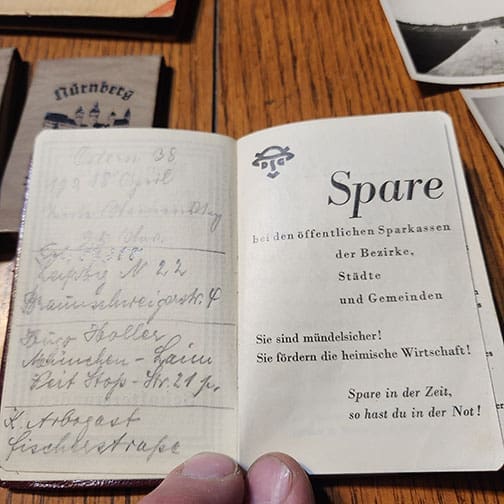 Nürnberg
Ostern 38
18 April
Leipzig N 22
Braunschweigerstr. 4
Hugo Holler
München - Laim
Veit Stoß - Str. 21
K. Arbogast
Fischerstraße
Spare
bei den öffentlichen Sparkassen
der Bezirke,
Städte
und Gemeinden
Sie sind mündelsicher!
Sie fördern die heimische Wirtschaft!
Spare in der Zeit,
so hast du in der Not!